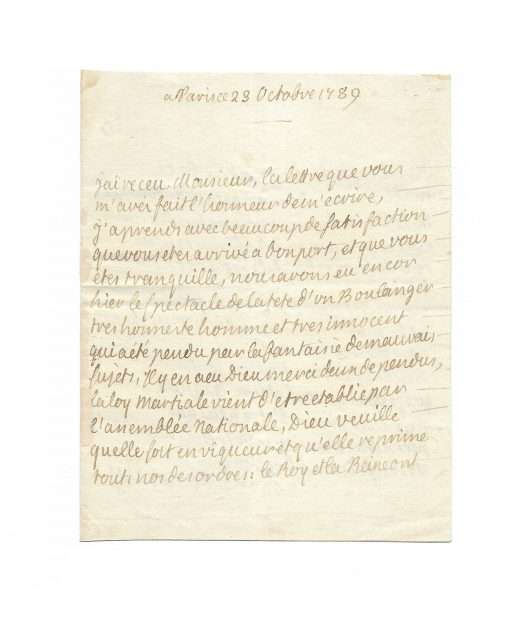 a Paris ce 23 Octobre 1789
J'ai receu, Monsieur, la lettre que vous
m'avés fait l'honneur de m'ecrire,
j'aprends avec beaucoup de satisfaction
que vous etes arrivé a bon port, et que vous
étes tranquille, nous avons eu encor
hier le spectacle de la tete d'un Boulanger
tres honneste homme et tres innocent
qui a été pendu par la fantaisie de mauvais
sujets, Il y en a eu Dieu merci deux de pendus,
la loy Martiale vient d'etre etablie par
l'assemblée Nationale, Dieu veuille
quelle soit en vigueur et qu'elle reprime
touts nos desordres: le Roy et la Reine ont